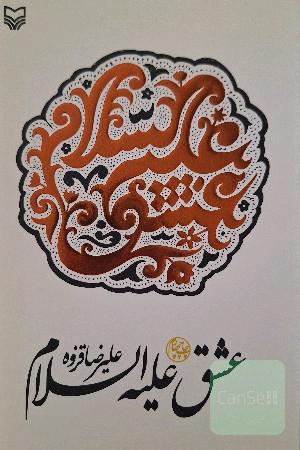 عشق علیه السلام
علیرضا قزوه
عشق علیه السلام
CanSell